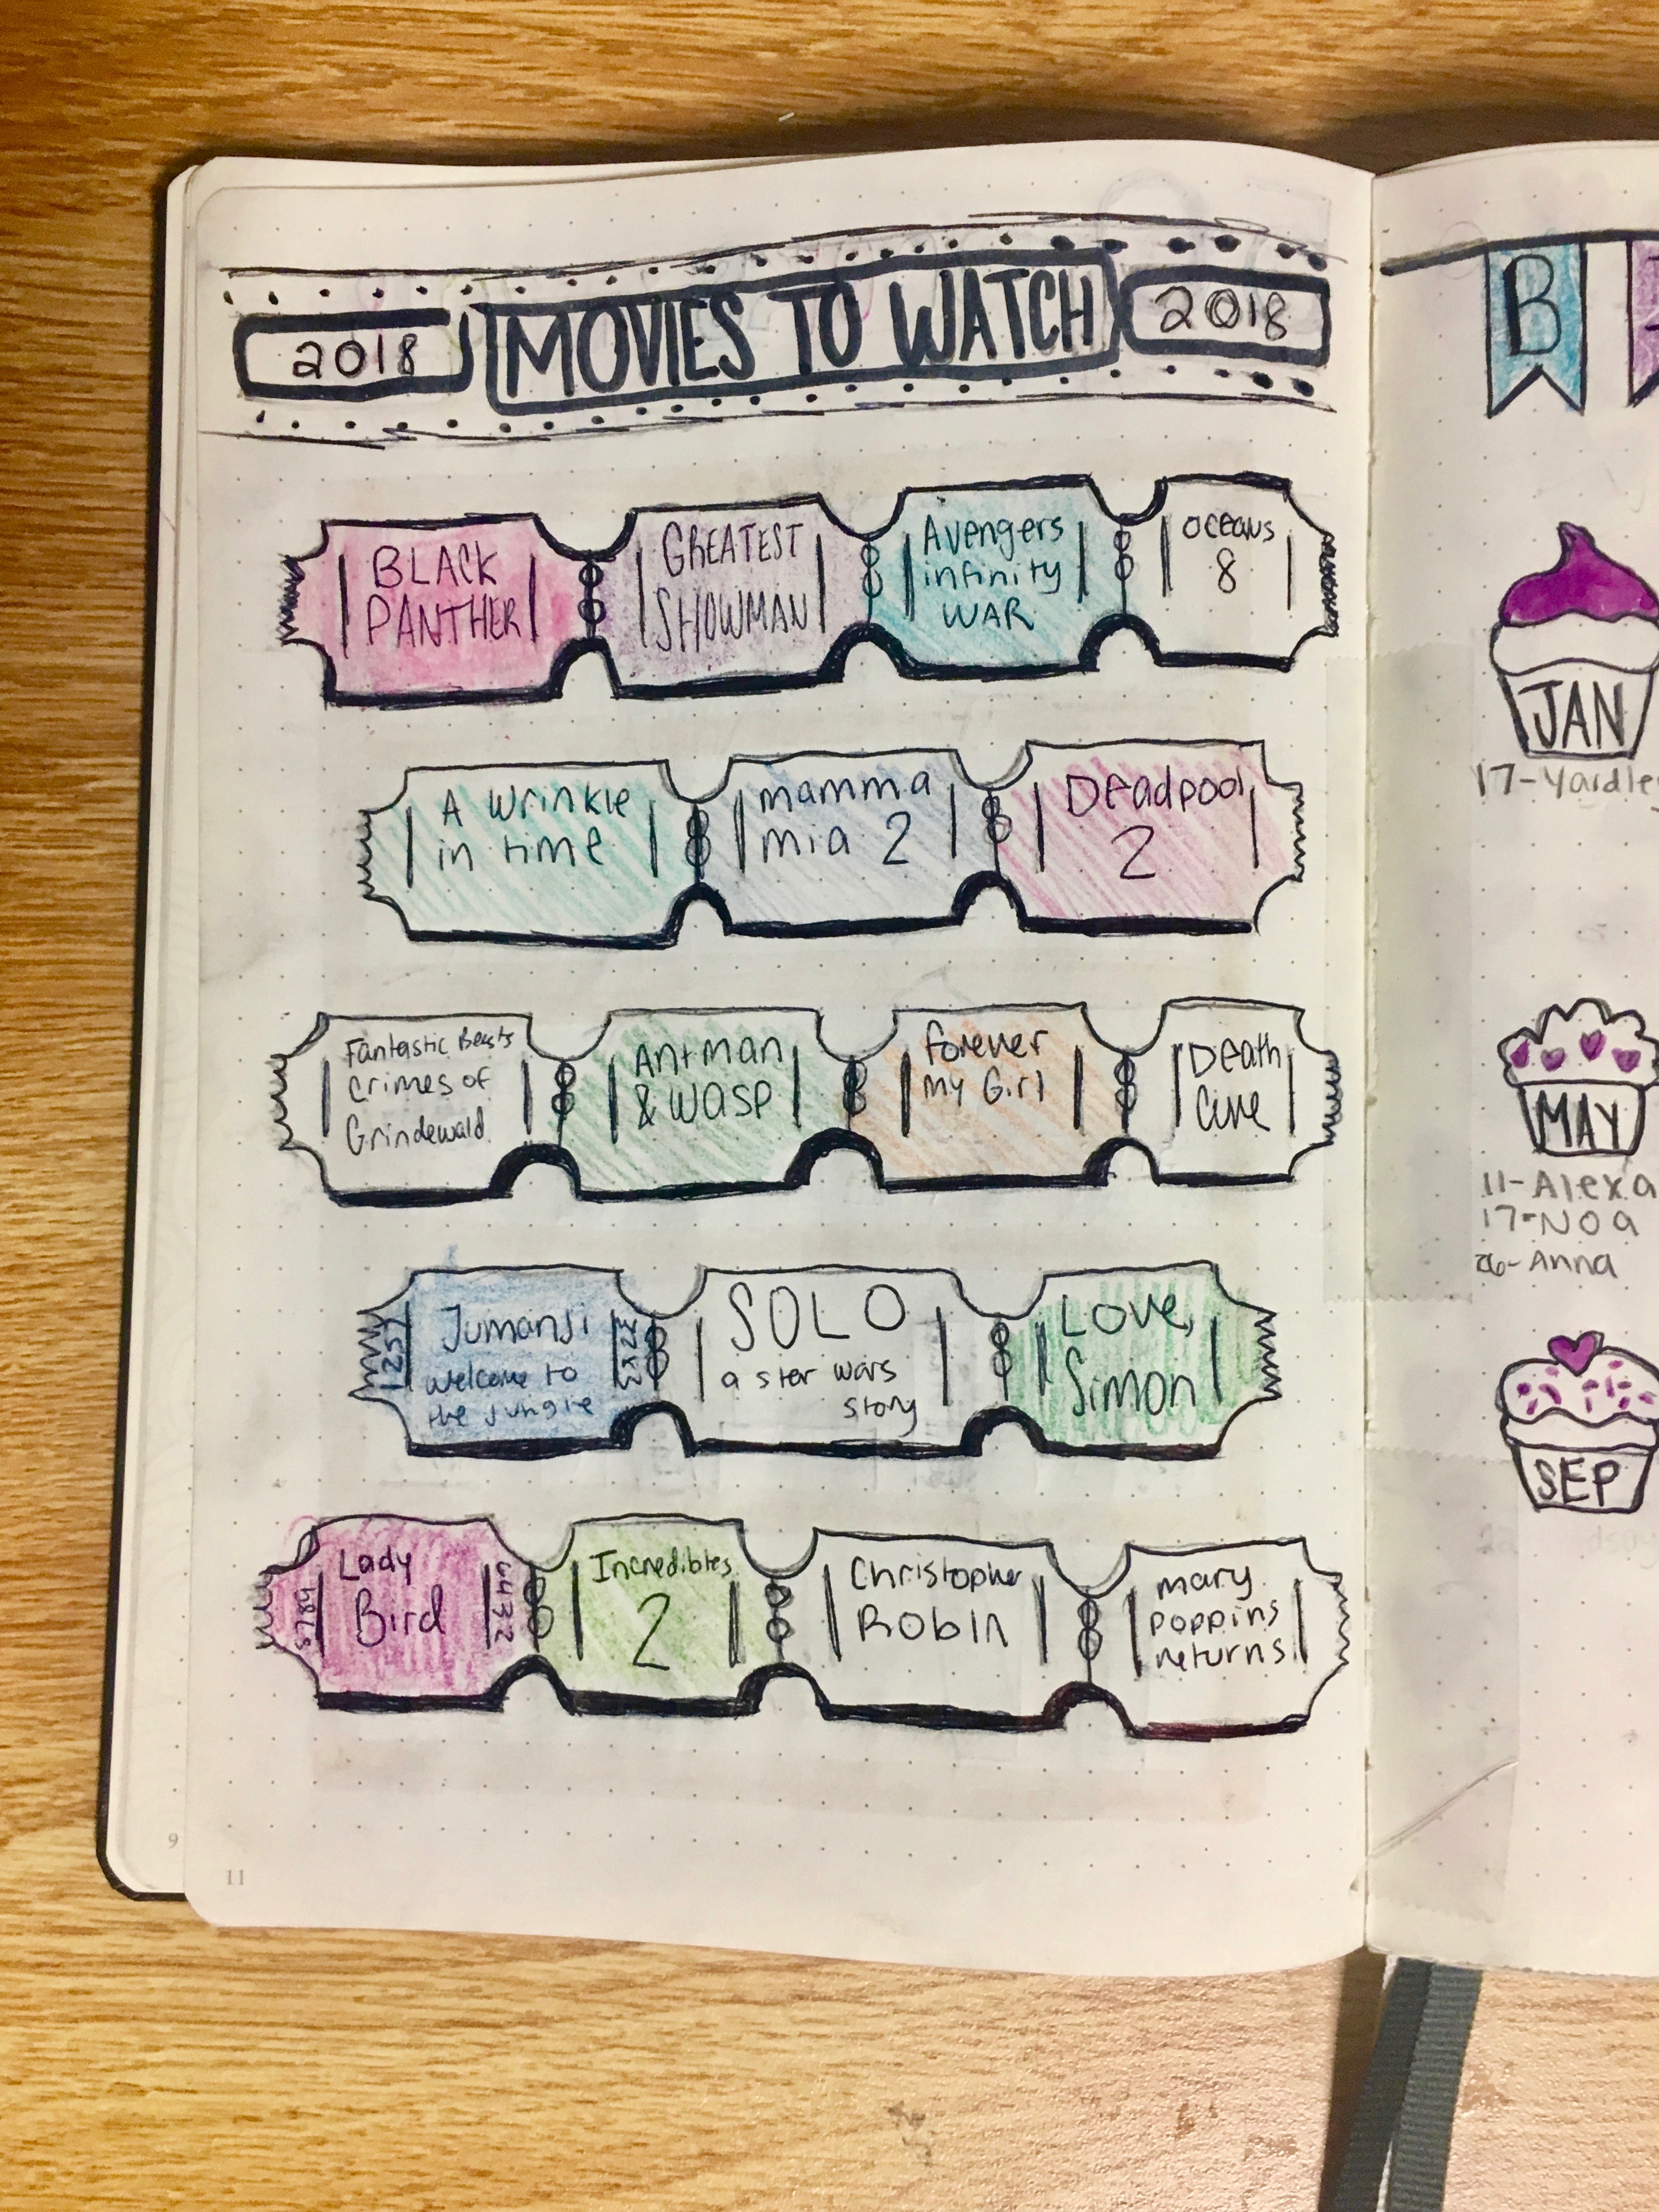 2018 MOVIES TO WATCH 2018
BLACK
PANTHER
GREATEST
SHOWMAN
Avengers
infinity
WAR
oceans
8
A Wrinkle
in time
mamma
mia 2
Deadpool
2
Fantastic Beasts
crimes of
Grindewald
Antman
& Wasp
forever
my Girl
Death
Cure
1257
Jumanji
welcome to
the jungle
SOLO
a star wars
story
Love,
Simon
Lady
Bird
6432
Incredibles
2
Christopher
Robin
mary
poppins
returns
9
11
B
JAN
17-Yardley
MAY
11-Alexa
17-Noa
26-Anna
SEP